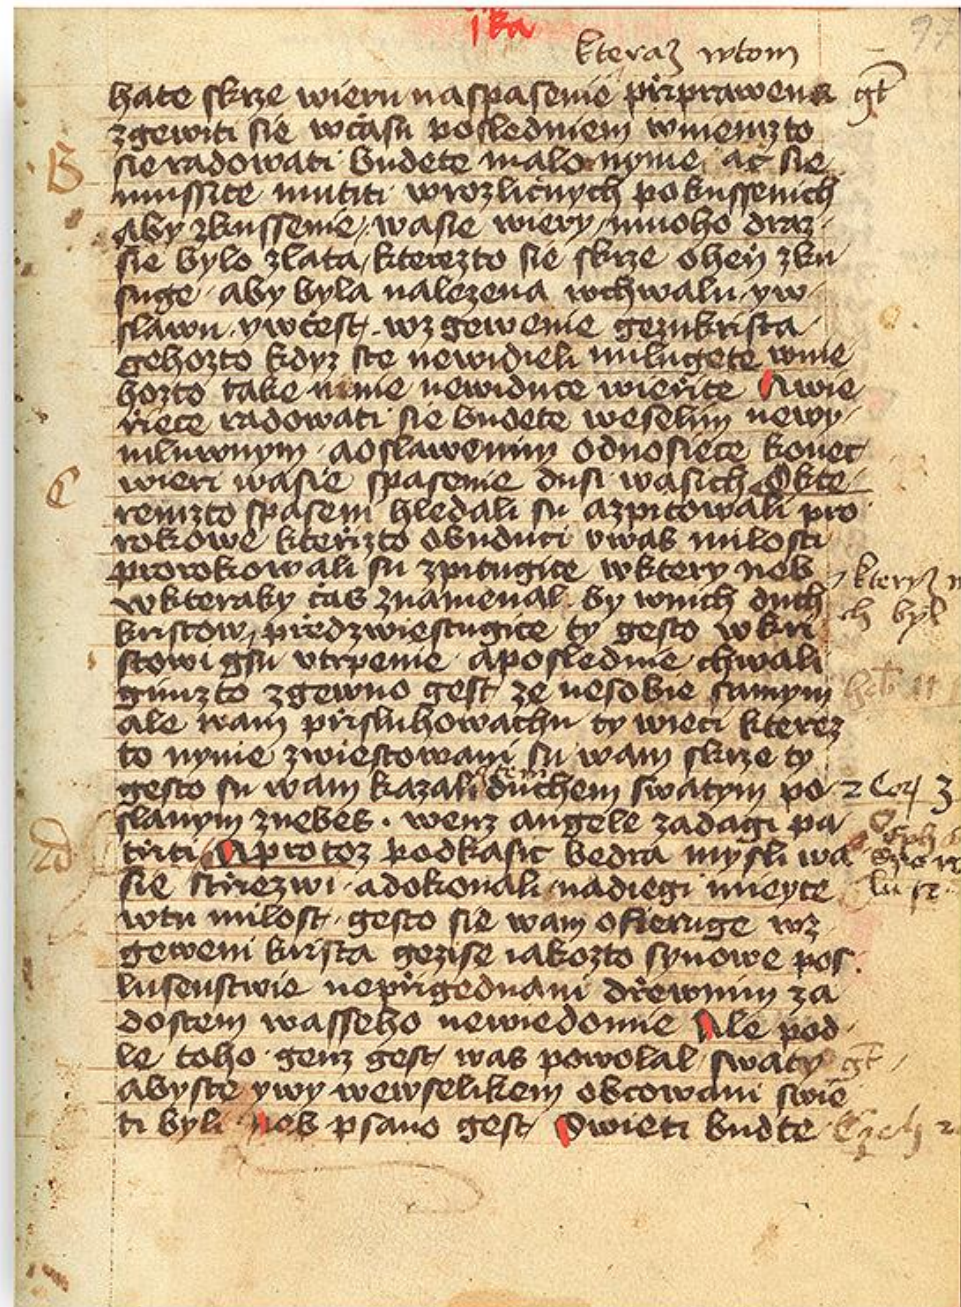 ika
97
kteraz wtom
hate skrze wieru naspasenie připrawena gt
zgewiti sie wčasu posledniem wniemzto
B
sie radowati budete malo nynie ač sie
mussite mutiti wrozličnych pokussenich
aby zkussenie wasie wiery mnoho draz
sie bylo zlata kterezto sie skrze oheň zku
suge aby byla nalezena wchwalu yw
slawu ywčest wzgewenie gezukrista
gehozto kdyz ste newidieli milugete wnie
hozto take nynie newiduce wieříte Awie
říce radowati sie budete weselim newy
mluwnym aoslawenim odnosiece konec
C
wieri wasie spasenie dusi wasich Okte
remzto spaseni hledali su azpitowali pro
rokowe kteřizto obuduci vwas milosti
prorokowali su zpitugice wktery neb
kteryz
wkteraky čas znamenal by wnich duch
ch byl
kristow předzwiestugice ty gesto wkri
stowi gsu vtrpenie aposlednie chwali
gimzto zgewno gest ze nesobie samym
ale wam přisluhowachu ty wieci kterez
to nynie zwiestowani su wam skrze ty
gesto su wam kazali duchem swatym po 2 Cor 3
slanym znebes wenz angele zadagi pa
třiti Aprotoz podkasic bedra mysli wa
sie střezwi adokonali nadiegi mieyte
wtu milost gesto sie wam ofieruge wz
geweni krista gezise iakozto synowe pos
lusenstwie nepřigednani dřewnim za
dostem wasseho newiedomie Ale pod
le toho genz gest was powolal swaty gt
abyste ywy wewselikem obcowani swie
ti byli neb psano gest Swieti budte